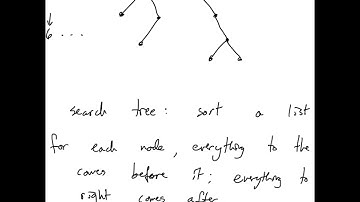 6 . . .
search tree : sort a list
for each node, everything to the
comes before it; everything to
right comes after